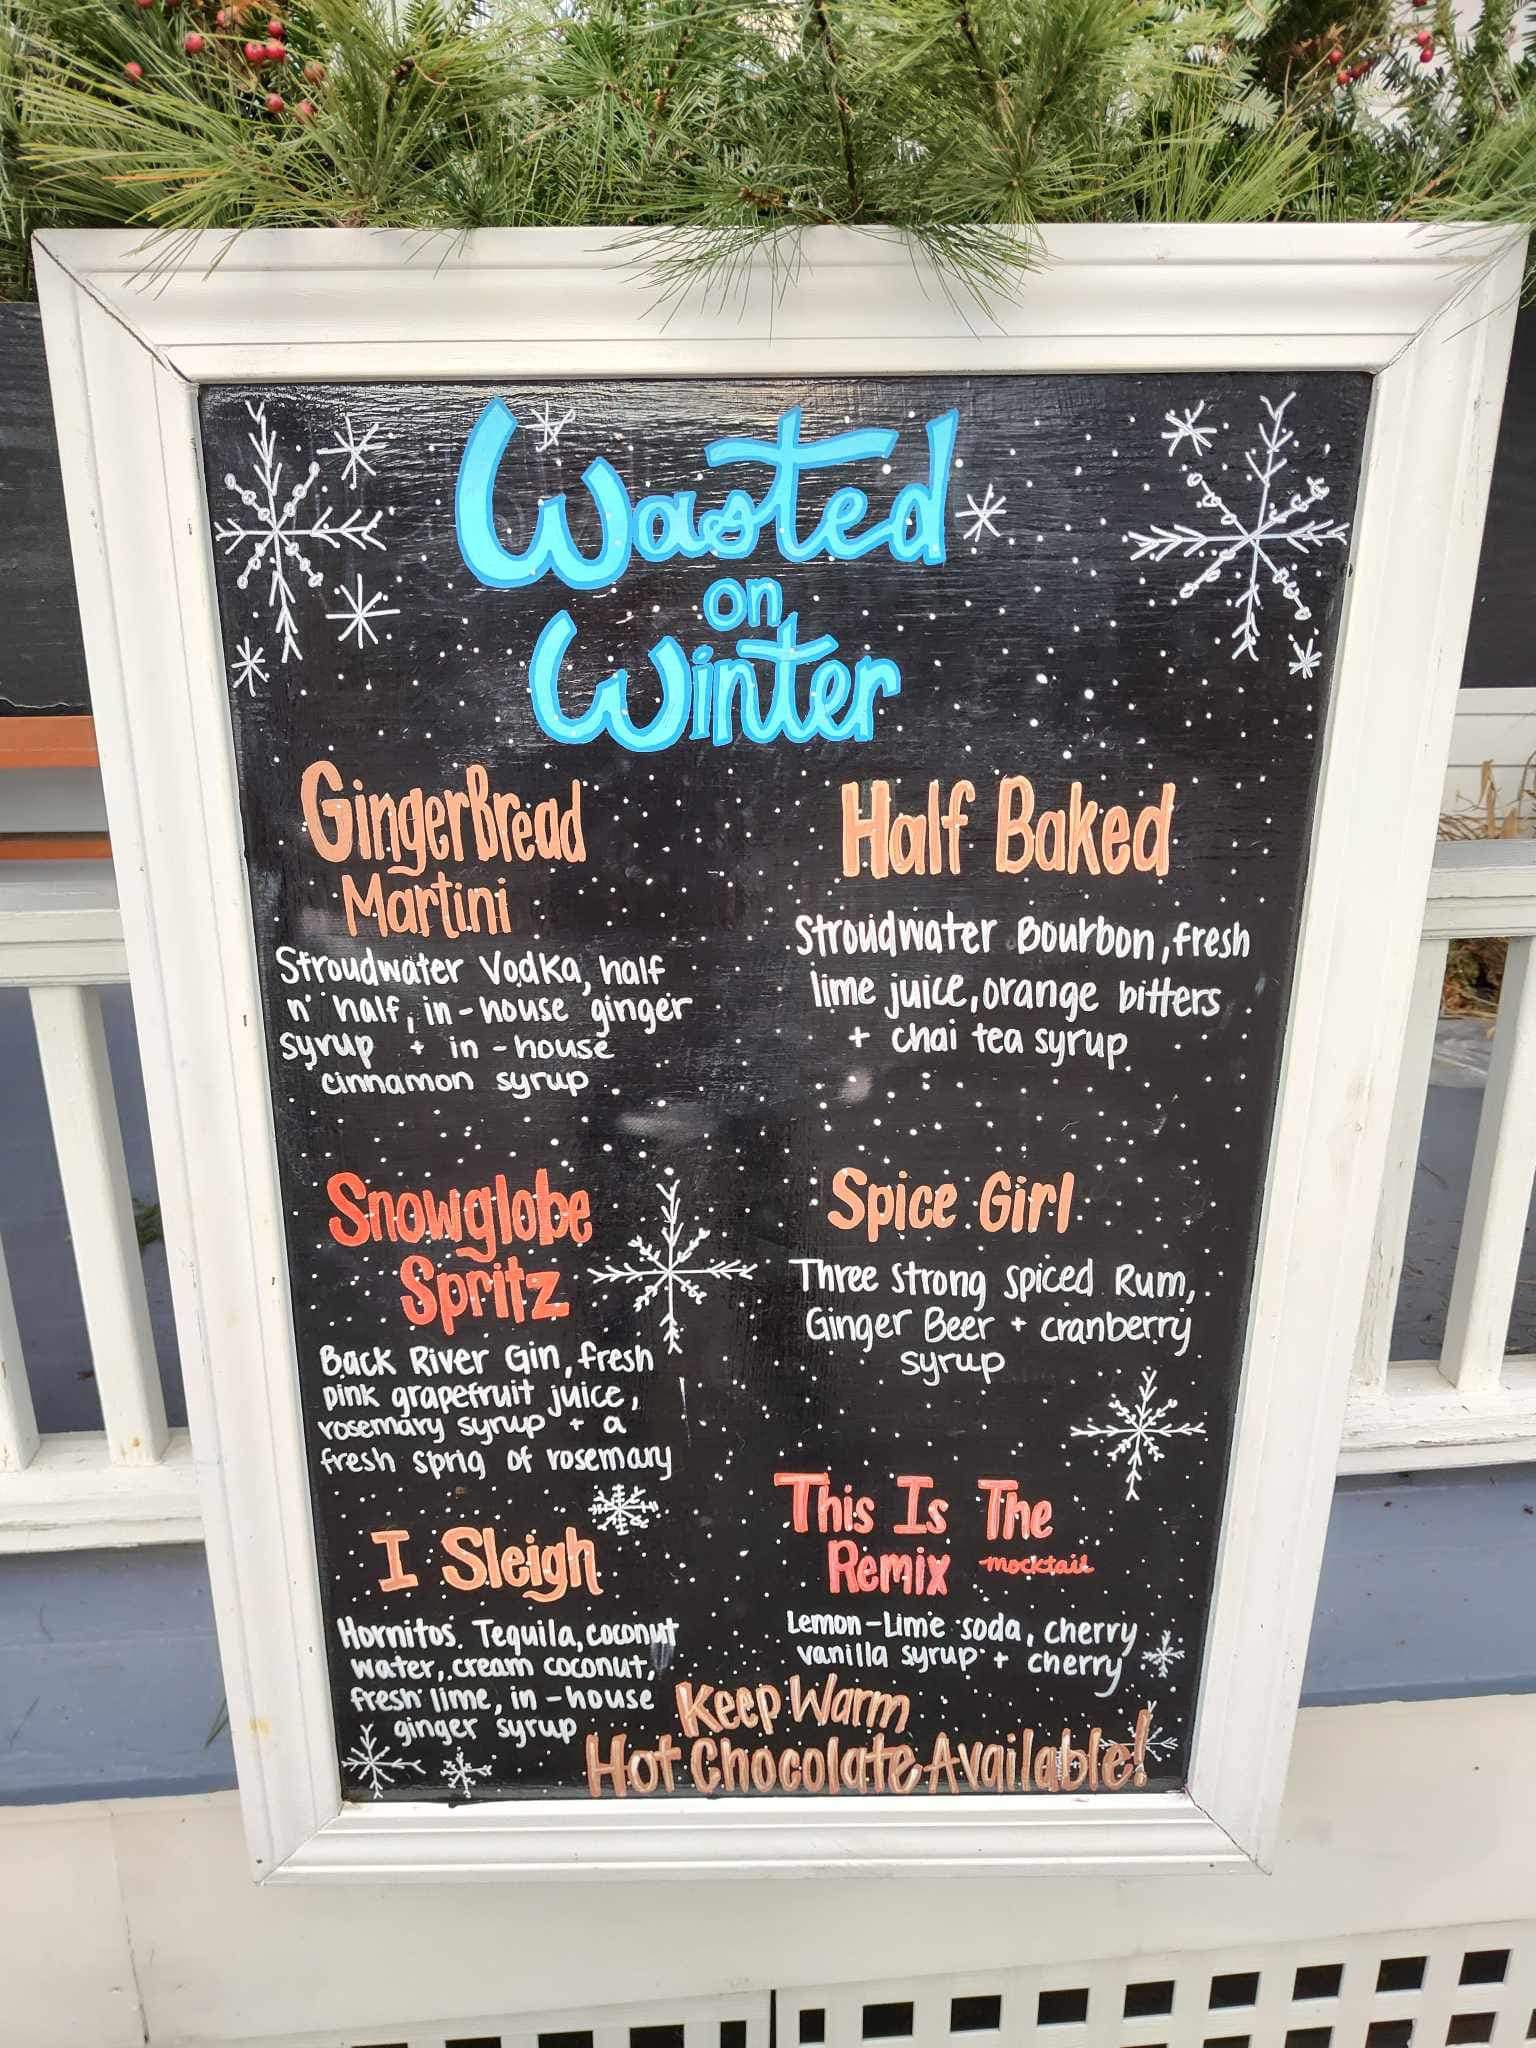 Wasted
on
Winter
GingerBread
Martini
Stroudwater Vodka, half
n' half, in-house ginger
syrup + in-house
cinnamon syrup
Half Baked
Stroudwater Bourbon, fresh
lime juice, orange bitters
+ chai tea syrup
Snowglobe
Spritz
Back River Gin, fresh
pink grapefruit juice,
rosemary syrup + a
fresh sprig of rosemary
Spice Girl
Three Strong Spiced Rum,
Ginger Beer + cranberry
syrup
I Sleigh
Hornitos Tequila, coconut
water, cream coconut,
fresh lime, in-house
ginger syrup
This Is The
Remix mocktail
Lemon-Lime soda, cherry
vanilla syrup + cherry
Keep Warm
Hot Chocolate Available!